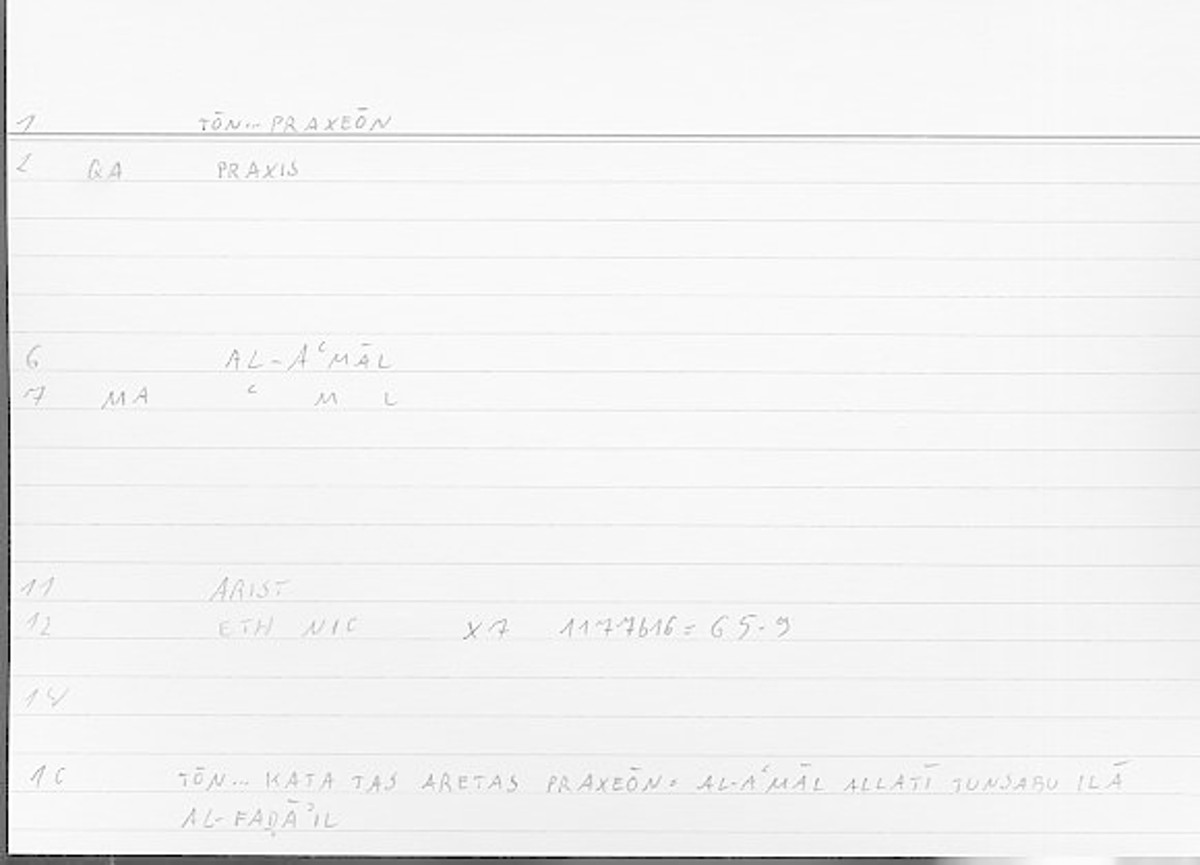 1 TŌN... PRAXEŌN
2 QA PRAXIS
6 AL-AʿMĀL
7 MA ʿ M L
11 ARIST
12 ETH NIC X7 1177b16 = 65.9
14
16 TŌN... KATA TAS ARETAS PRAXEŌN = AL-AʿMĀL ALLATĪ TUNSABU ILĀ
AL-FAḌĀʾIL